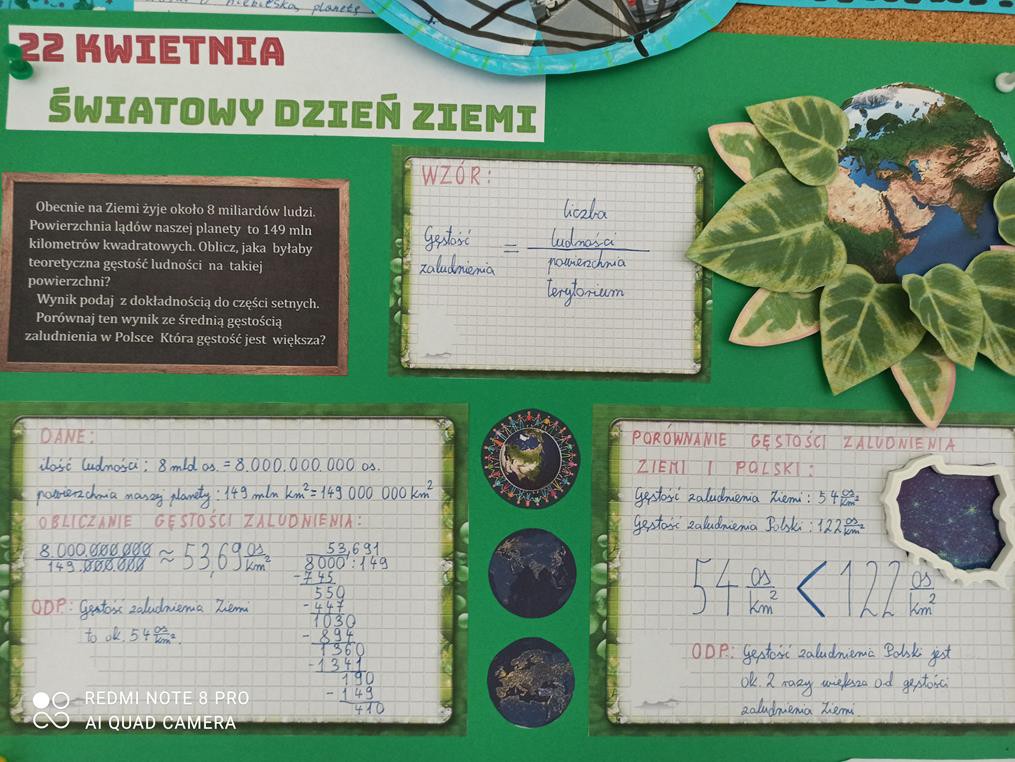 niebieską planetę
22 KWIETNIA
ŚWIATOWY DZIEŃ ZIEMI
Obecnie na Ziemi żyje około 8 miliardów ludzi.
Powierzchnia lądów naszej planety to 149 mln
kilometrów kwadratowych. Oblicz, jaka byłaby
teoretyczna gęstość ludności na takiej
powierzchni?
Wynik podaj z dokładnością do części setnych.
Porównaj ten wynik ze średnią gęstością
zaludnienia w Polsce Która gęstość jest większa?
WZÓR:
Gęstość
zaludnienia
=
liczba
ludności
powierzchnia
terytorium
DANE:
ilość ludności: 8 mld os. = 8.000.000.000 os.
powierzchnia naszej planety: 149 mln km² = 149 000 000 km²
OBLICZANIE GĘSTOŚCI ZALUDNIENIA:
8.000.000.000
149.000.000
≈ 53,69 os/km²
ODP: Gęstość zaludnienia Ziemi
to ok. 54 os/km².
53,691
8000:149
-745
550
-447
1030
-894
1360
-1341
190
-149
410
PORÓWNANIE GĘSTOŚCI ZALUDNIENIA
ZIEMI I POLSKI:
Gęstość zaludnienia Ziemi: 54 os/km²
Gęstość zaludnienia Polski: 122 os/km²
54 os/km² < 122 os/km²
ODP: Gęstość zaludnienia Polski jest
ok. 2 razy większa od gęstości
zaludnienia Ziemi.
REDMI NOTE 8 PRO
AI QUAD CAMERA